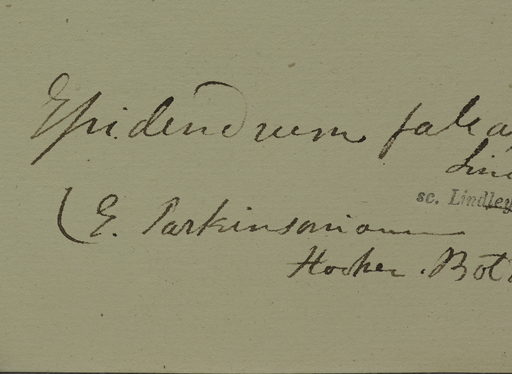 Epidendrum falca
Lind
sc. Lindley
(E. Parkinsonianum
Hooker. Bot.